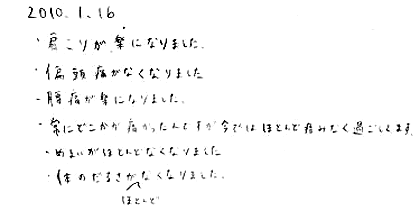 2010.1.16
・肩こりが楽になりました。
・偏頭痛がなくなりました
・腰痛が楽になりました。
・常にどこかが痛かったんですが今ではほとんど痛みなく過ごしてます。
・めまいがほとんどなくなりました
・体のだるさがなくなりました。
ほとんど